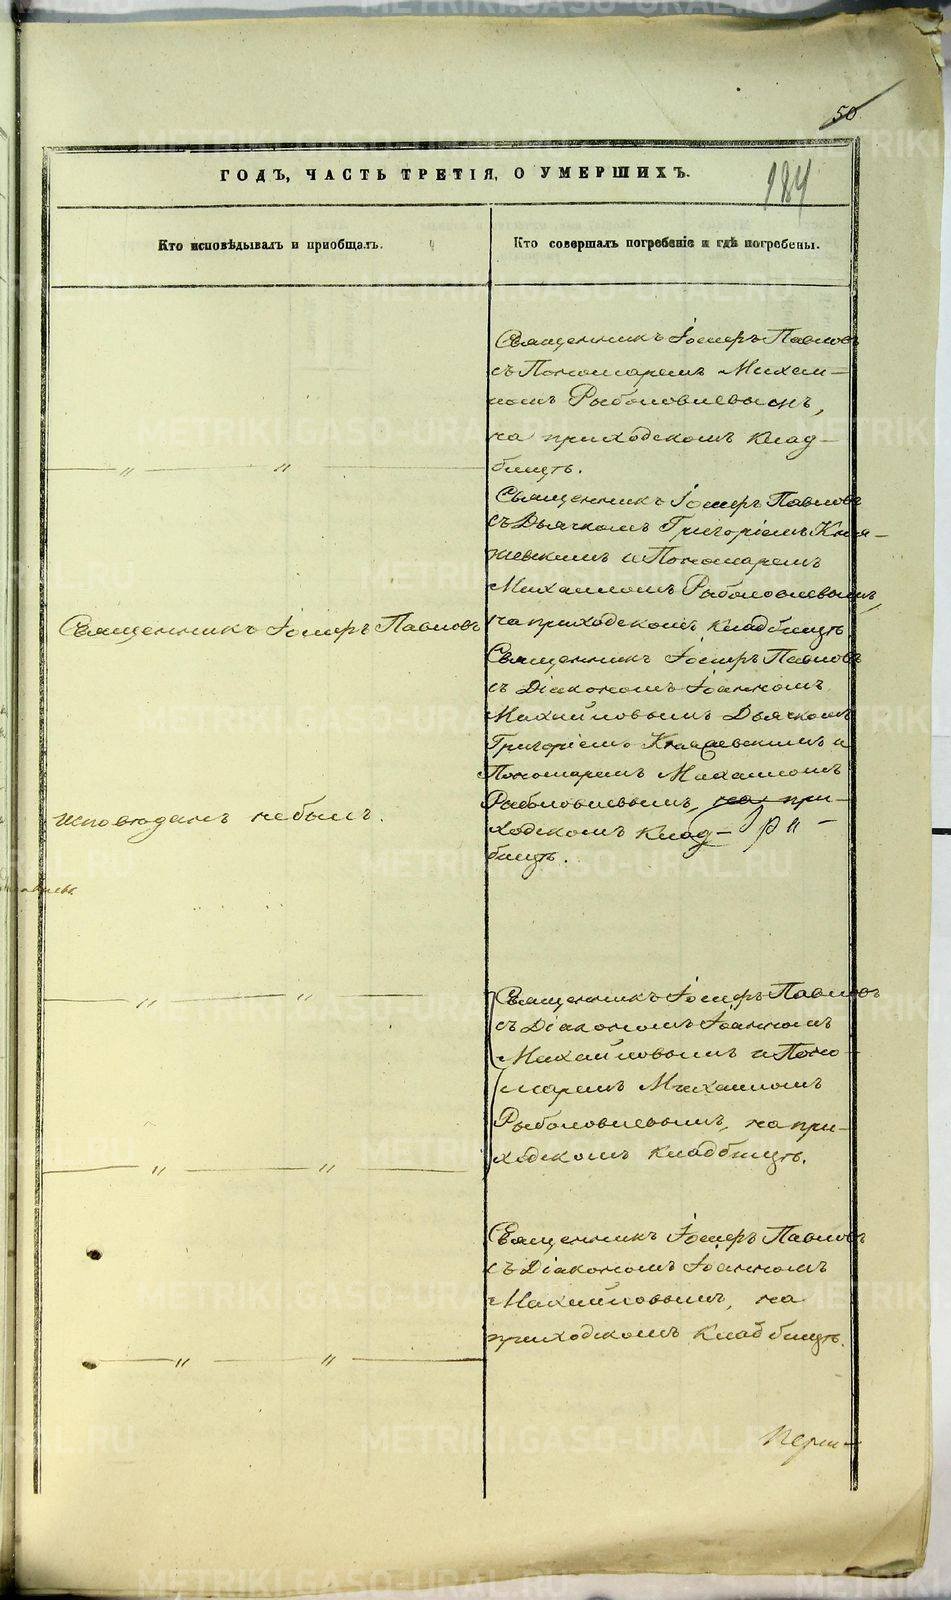 50
184
ГОДЪ, ЧАСТЬ ТРЕТІЯ, О УМЕРШИХЪ.
Кто исповѣдывалъ и пріобщалъ.
Кто совершалъ погребеніе и гдѣ погребены.
Священникъ Іосифъ Павловъ
съ Пономаремъ Михаи-
ломъ Рыболовлевымъ,
на приходскомъ клад-
бищѣ.
— " — " —
Священникъ Іосифъ Павловъ
съ Дьячкомъ Григоріемъ
и Пономаремъ
Михаиломъ Рыболовлевымъ,
на приходскомъ кладбищѣ.
Священникъ Іосифъ Павловъ
Священникъ Іосифъ Павловъ
съ Діакономъ Іоанномъ
Михайловымъ Дьячкомъ
Григоріемъ и
Пономаремъ Михаиломъ
Рыболовлевымъ, на при-
ходскомъ клад-
бищѣ.
исповѣданъ небылъ.
— " — " —
Священникъ Іосифъ Павловъ
съ Діакономъ Іоанномъ
Михайловымъ и Поно-
маремъ Михаиломъ
Рыболовлевымъ, на при-
ходскомъ кладбищѣ.
— " — " —
Священникъ Іосифъ Павловъ
съ Діакономъ Іоанномъ
Михайловымъ, на
приходскомъ кладбищѣ.
— " — " —
METRIKI.GASO-URAL.RU